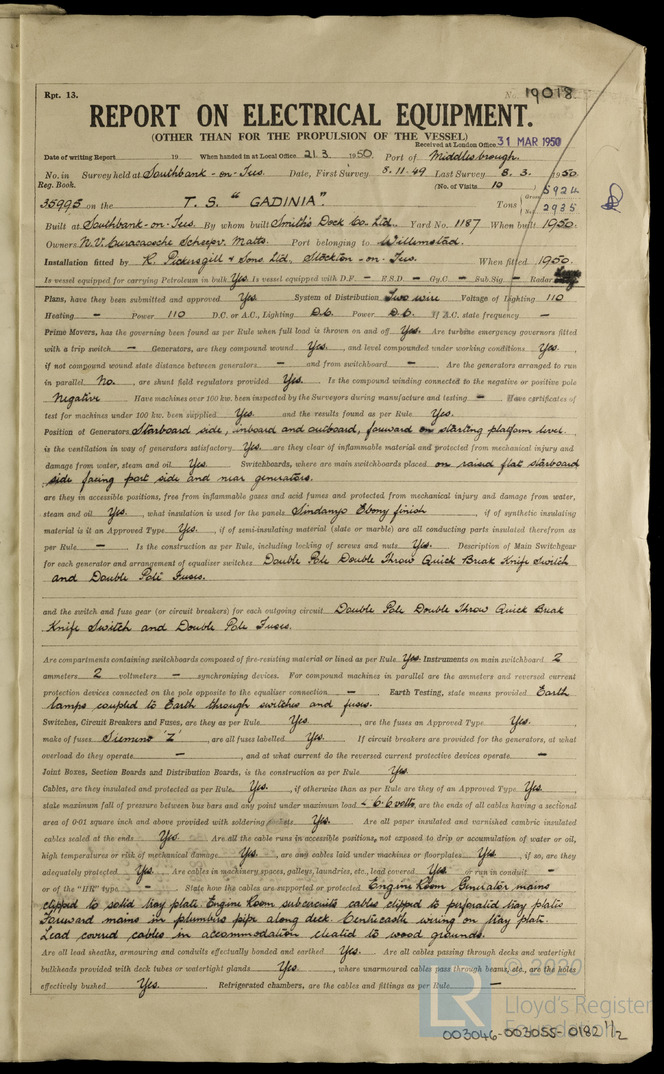 Rpt. 13.
No. 19018.
REPORT ON ELECTRICAL EQUIPMENT.
(OTHER THAN FOR THE PROPULSION OF THE VESSEL)
Received at London Office 31 MAR 1950
Date of writing Report 19 When handed in at Local Office 21.3. 1950. Port of Middlesbrough.
No. in Survey held at Southbank-on-Tees. Date, First Survey 8.11.49 Last Survey 8.3. 1950.
Reg. Book. (No. of Visits 10
35995 on the T.S. "GADINIA". Tons { Gross 5924
Net 2935
Built at Southbank-on-Tees. By whom built Smith's Dock Co. Ltd. Yard No. 1187 When built 1950.
Owners N.V. Curacaosche Scheepv. Matts. Port belonging to Willemstad.
Installation fitted by R. Pickersgill & Sons Ltd, Stockton-on-Tees. When fitted 1950.
Is vessel equipped for carrying Petroleum in bulk Yes. Is vessel equipped with D.F. – E.S.D. – Gy.C. – Sub.Sig. – Radar
Plans, have they been submitted and approved Yes. System of Distribution Two wire Voltage of Lighting 110
Heating – Power 110 D.C. or A.C., Lighting D.C. Power D.C. If A.C. state frequency –
Prime Movers, has the governing been found as per Rule when full load is thrown on and off Yes. Are turbine emergency governors fitted
with a trip switch – Generators, are they compound wound Yes., and level compounded under working conditions Yes.,
if not compound wound state distance between generators – and from switchboard – Are the generators arranged to run
in parallel No., are shunt field regulators provided Yes. Is the compound winding connected to the negative or positive pole
Negative Have machines over 100 kw. been inspected by the Surveyors during manufacture and testing – Have certificates of
test for machines under 100 kw. been supplied Yes. and the results found as per Rule Yes.
Position of Generators Starboard side, inboard and outboard, forward on starting platform level.
is the ventilation in way of generators satisfactory Yes. are they clear of inflammable material and protected from mechanical injury and
damage from water, steam and oil Yes. Switchboards, where are main switchboards placed on raised flat starboard
side facing port side and near generators.
are they in accessible positions, free from inflammable gases and acid fumes and protected from mechanical injury and damage from water,
steam and oil Yes., what insulation is used for the panels Sindanyo Ebony finish, if of synthetic insulating
material is it an Approved Type Yes., if of semi-insulating material (slate or marble) are all conducting parts insulated therefrom as
per Rule – Is the construction as per Rule, including locking of screws and nuts Yes. Description of Main Switchgear
for each generator and arrangement of equaliser switches Double Pole Double Throw Quick Break Knife Switch
and Double Pole Fuses.
and the switch and fuse gear (or circuit breakers) for each outgoing circuit Double Pole Double Throw Quick Break
Knife Switch and Double Pole Fuses.
Are compartments containing switchboards composed of fire-resisting material or lined as per Rule Yes. Instruments on main switchboard 2
ammeters 2 voltmeters – synchronising devices. For compound machines in parallel are the ammeters and reversed current
protection devices connected on the pole opposite to the equaliser connection –. Earth Testing, state means provided Earth
lamps coupled to Earth through switches and fuses.
Switches, Circuit Breakers and Fuses, are they as per Rule Yes., are the fuses an Approved Type Yes.,
make of fuses Siemens 'Z', are all fuses labelled Yes. If circuit breakers are provided for the generators, at what
overload do they operate –, and at what current do the reversed current protective devices operate –
Joint Boxes, Section Boards and Distribution Boards, is the construction as per Rule Yes.
Cables, are they insulated and protected as per Rule Yes., if otherwise than as per Rule are they of an Approved Type Yes.,
state maximum fall of pressure between bus bars and any point under maximum load < 6.6 volts, are the ends of all cables having a sectional
area of 0·01 square inch and above provided with soldering sockets Yes. Are all paper insulated and varnished cambric insulated
cables sealed at the ends Yes. Are all the cable runs in accessible positions, not exposed to drip or accumulation of water or oil,
high temperatures or risk of mechanical damage Yes., are any cables laid under machines or floorplates Yes., if so, are they
adequately protected Yes. Are cables in machinery spaces, galleys, laundries, etc., lead covered Yes. or run in conduit –
or of the "HR" type – State how the cables are supported or protected Engine Room Generator mains
clipped to solid tray plate. Engine Room subcircuits cables clipped to perforated tray plate.
Forward mains in plumbing pipe along deck. Centrecastle wiring on tray plate.
Lead covered cables in accommodation cleated to wood grounds.
Are all lead sheaths, armouring and conduits effectually bonded and earthed Yes. Are all cables passing through decks and watertight
bulkheads provided with deck tubes or watertight glands Yes., where unarmoured cables pass through beams, etc., are the holes
effectively bushed Yes. Refrigerated chambers, are the cables and fittings as per Rule –
LR
© 2020
Lloyd's Register
Foundation
003046-003055-0182 1/2